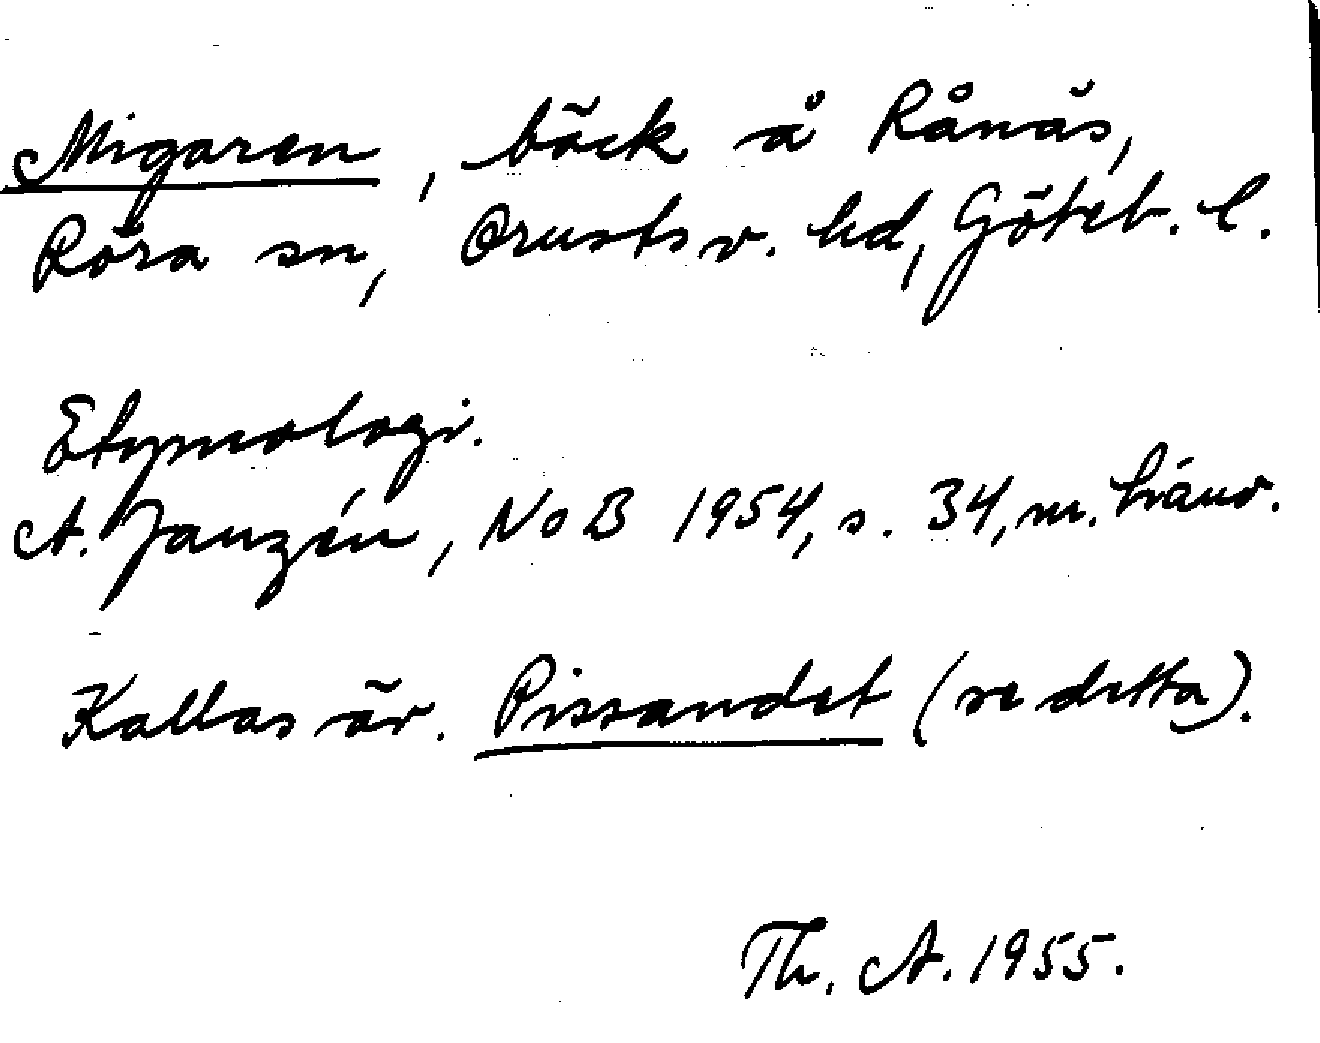 Migaren, bäck å Rånäs,
Röra sn, Orusts v. hd, Göteb. l.
Etymologi.
A. Janzén, NoB 1954, s. 34, m. hänv.
Kallas äv. Pissandet (se detta).
Th. A. 1955.